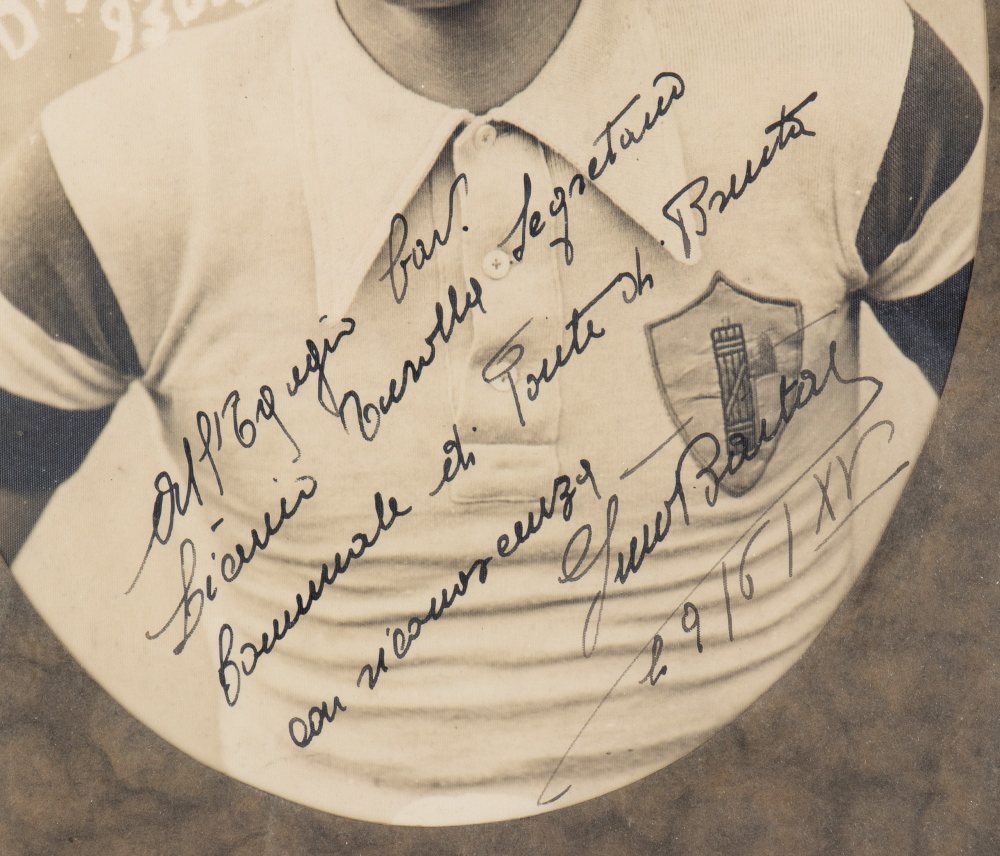 All'Egregio Cav.
Licinio Turolla Segretario
Comunale di Ponte di Brenta
con riconoscenza
Gino Bartali
9/6/XV